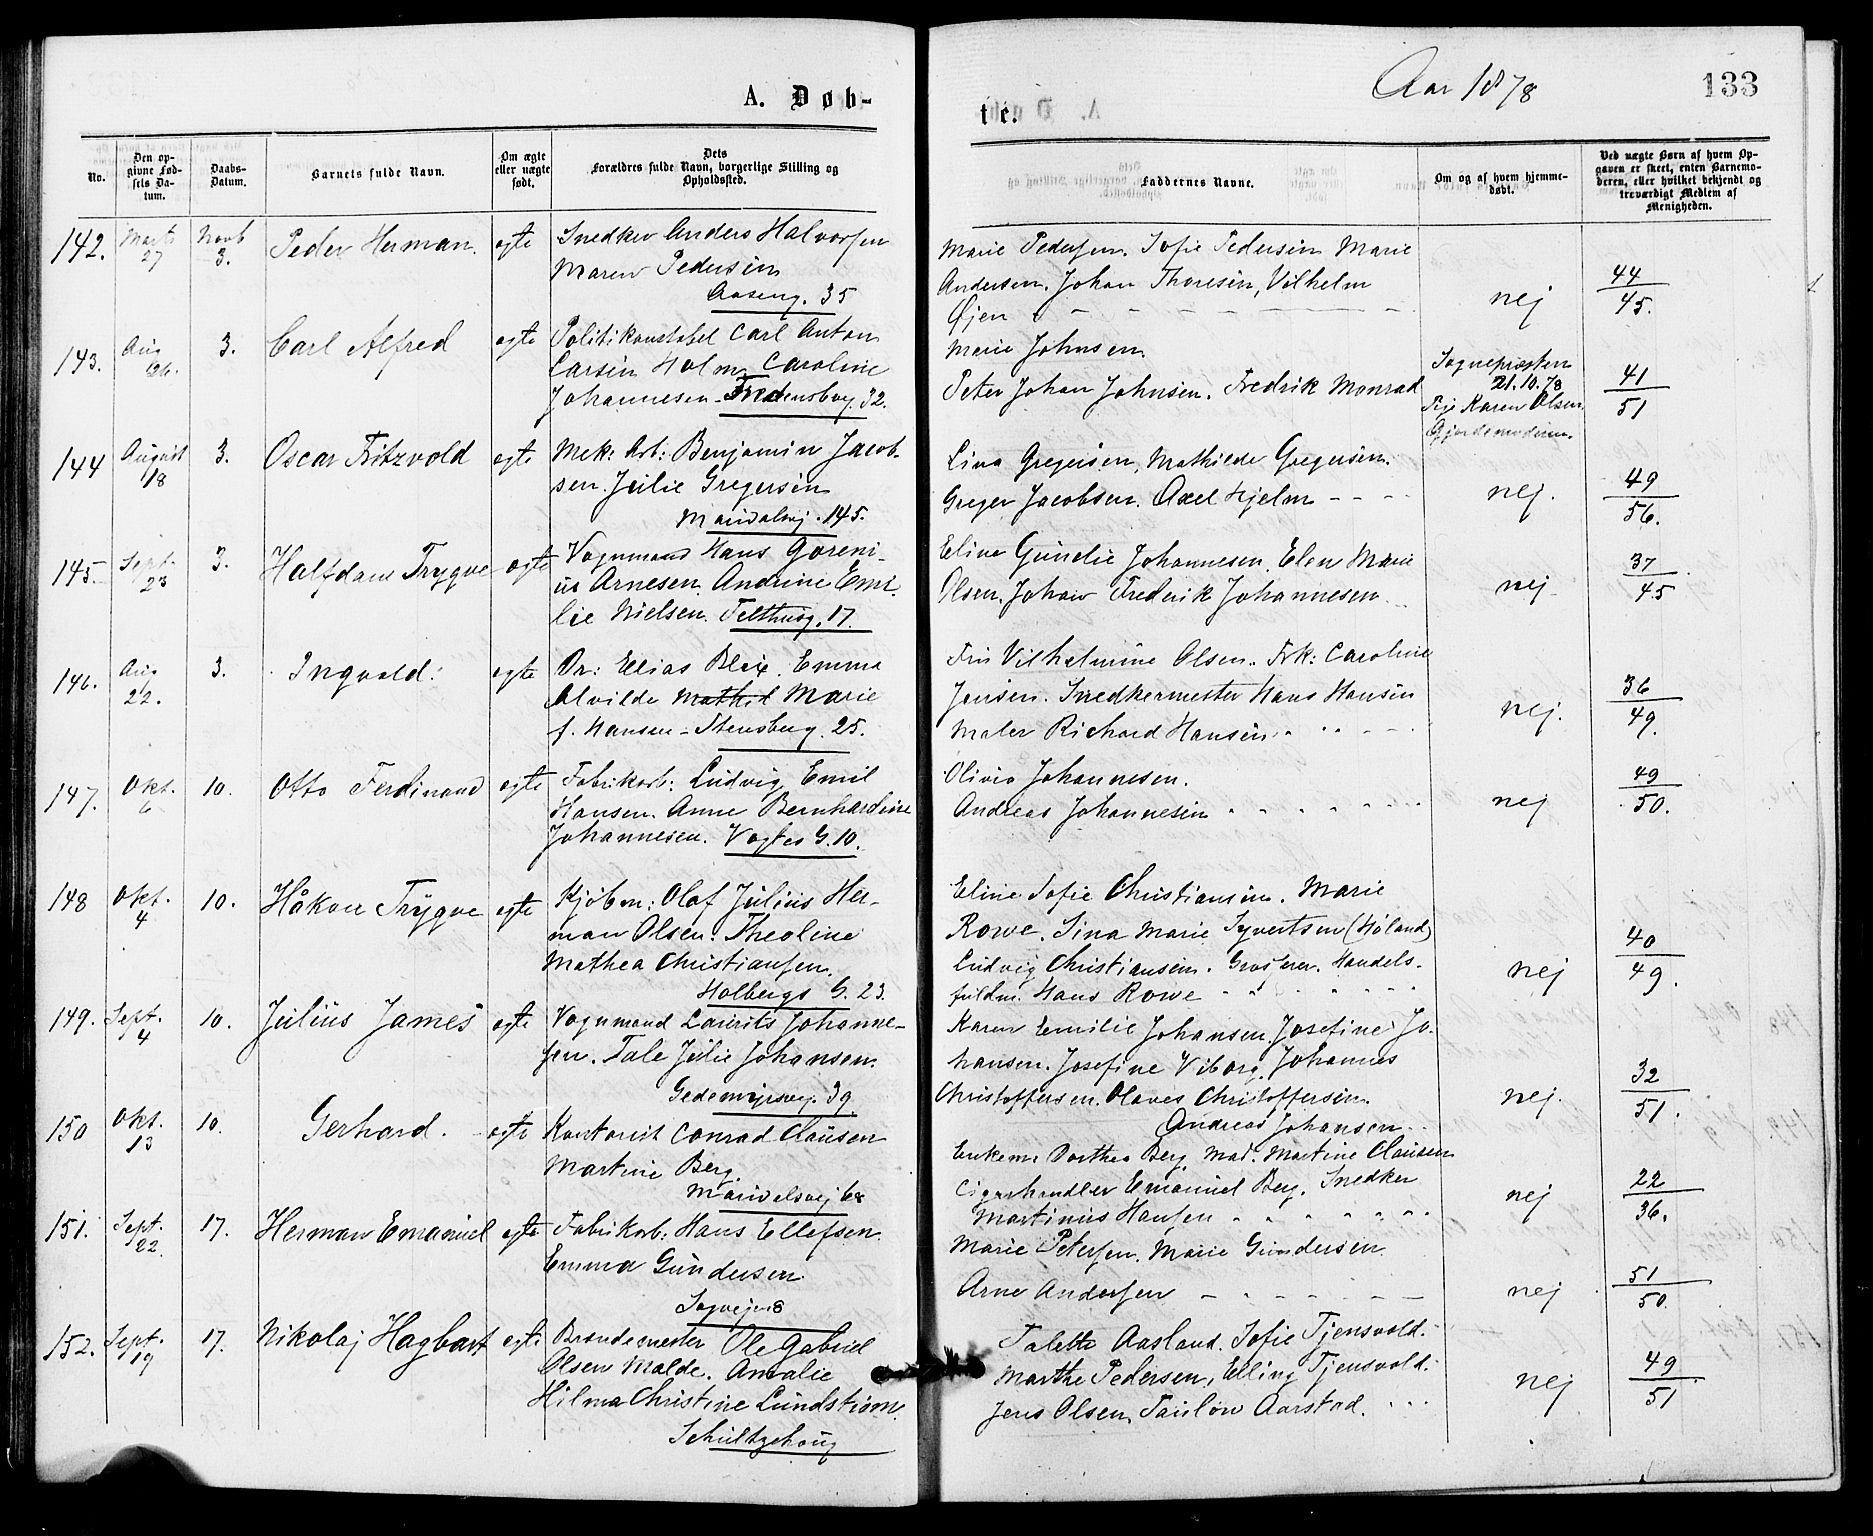 A. Døb-
te.
Aar 1878
133
No.
Den op-
givne Fød-
sels Da-
tum.
Daabs-
Datum.
Barnets fulde Navn.
Om ægte
eller uægte
født.
Dets
Forældres fulde Navn, borgerlige Stilling og
Opholdssted.
Faddernes Navne.
Om og af hvem hjemme-
døbt.
Ved uægte Børn af hvem Op-
gaven er skeet, enten Barnemo-
deren, eller hvilket bekjendt og
troværdigt Medlem af
Menigheden.
142. Marts 27 Novb 3. Peder Herman. egte
Snedker Anders Halvorsen
Maren Pedersen
Aaseng. 35
Marie Pedersen. Sofie Pedersen Marie
Andersen. Johan Thoresen, Vilhelm
Øjen
nej
44
45.
143. Aug 26. 3. Carl Alfred egte
Politikonstabel Carl Anton
Larsen Holm Caroline
Johannesen - Fredensborg. 32.
Marie Johnsen
Peter Johan Johnsen. Fredrik Monrad
Sognepresten
21.10.78
Karen Olsen
Gjordemoderen.
41
51
144 August 18 3. Oscar Fritzvold egte
Mek: Arb: Benjamin Jacob-
sen. Julie Gregersen
Maridalsvj. 145.
Lina Gregersen, Mathilde Gregersen.
Greger Jacobsen. Axel Hjelm
nej.
49
56.
145. Sept. 23 3. Halfdan Trygve egte
Vognmand Hans Goreni-
us Arnesen. Andrine Emi-
lie Nielsen. Telthusg. 17.
Eline Gundie Johannesen. Elen Marie
Olsen. Johan Frederik Johannesen
nej
37
45
146. Aug 22. 3. Ingvald. egte
Dr: Elias Blix. Emma
Alvilde Mathil Marie
f. Hansen - Stensberg. 25.
Fru Vilhelmine Olsen. Frk: Caroline
Jensen. Snedkermester Hans Hansen
Maler Richard Hansen
nej.
36
49.
147. Okt. 6 10. Otto Ferdinand egte
Fabrikarb: Ludvig Emil
Hansen. Anne Bernhardine
Johannesen. Vogtes G. 10.
Olivia Johannesen.
Andreas Johannesen
nej
49
50.
148 Okt. 4 10. Håkon Trygve egte
Kjøbm: Olaf Julius Her-
man Olsen. Theoline
Mathea Christiansen.
Holbergs G. 23.
Eline Sofie Christiansen. Marie
Rowe. Sina Marie Syvertsen (Høland)
Ludvig Christiansen. Grosserer. Handels-
fuldm. Hans Rowe
nej
40
49.
149. Sept. 4 10. Julius James egte
Vognmand Laurits Johanne-
sen. Tale Julie Johansen.
Gedemyrsvg. 39
Karen Emilie Johansen. Josefine Jo-
hansen. Josefine Viborg. Johannes
Christoffersen. Olaves Christoffersen.
Andreas Johansen
nej.
32
51.
150 Okt. 13 10. Gerhard. egte
Kontorist Conrad Clausen
Martine Berg.
Maridalsvej 68
Enkem. Dorthea Berg. Mad. Martine Clausen
Cigarhandler Emanuel Berg. Snedker
Martinus Hansen
nej
22
36.
151. Sept. 22. 17. Herman Emanuel egte
Fabrikarb: Hans Ellefsen.
Emma Gundersen
Sagvejen 8
Marie Petersen. Marie Gundersen
Arne Andersen
nej
51
50
152. Sept. 19 17. Nikolaj Hagbart egte
Brandmester Ole Gabriel
Olsen Malde. Amalie
Hilma Christine Lundstrøm.
Schultzehaug
Talette Aasland. Sofie Tjensvold.
Marthe Pedersen, Elling Tjensvold.
Jens Olsen, Taulow Aarstad.
nej
49
51